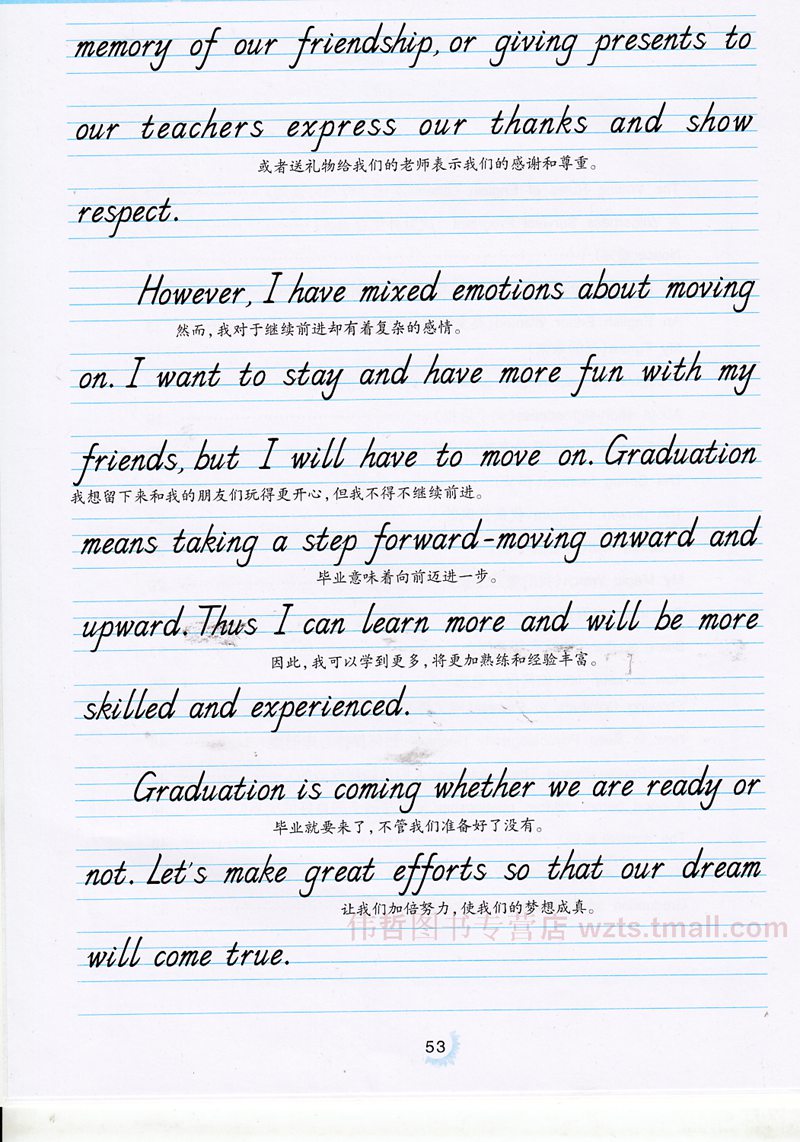 memory of our friendship, or giving presents to
our teachers express our thanks and show
或者送礼物给我们的老师表示我们的感谢和尊重。
respect.
However, I have mixed emotions about moving
然而,我对于继续前进却有着复杂的感情。
on. I want to stay and have more fun with my
friends, but I will have to move on. Graduation
我想留下来和我的朋友们玩得更开心,但我不得不继续前进。
means taking a step forward-moving onward and
毕业意味着向前迈进一步。
upward. Thus I can learn more and will be more
因此,我可以学到更多,将更加熟练和经验丰富。
skilled and experienced.
Graduation is coming whether we are ready or
毕业就要来了,不管我们准备好了没有。
not. Let's make great efforts so that our dream
让我们加倍努力,使我们的梦想成真。
伟哲图书专营店 wzts.tmall.com
will come true.
53